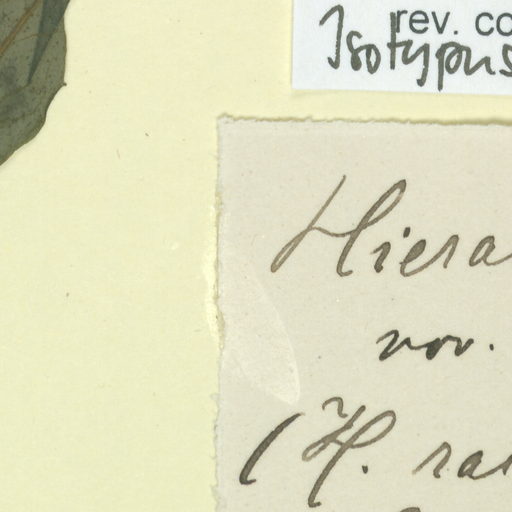 rev. co
Isotypus
Hiera
nov.
(H. ra